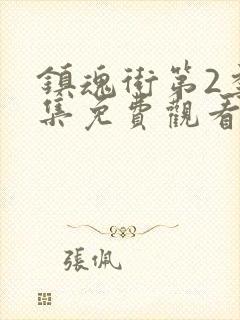 鎮魂街第2季
集免費觀看
張佩